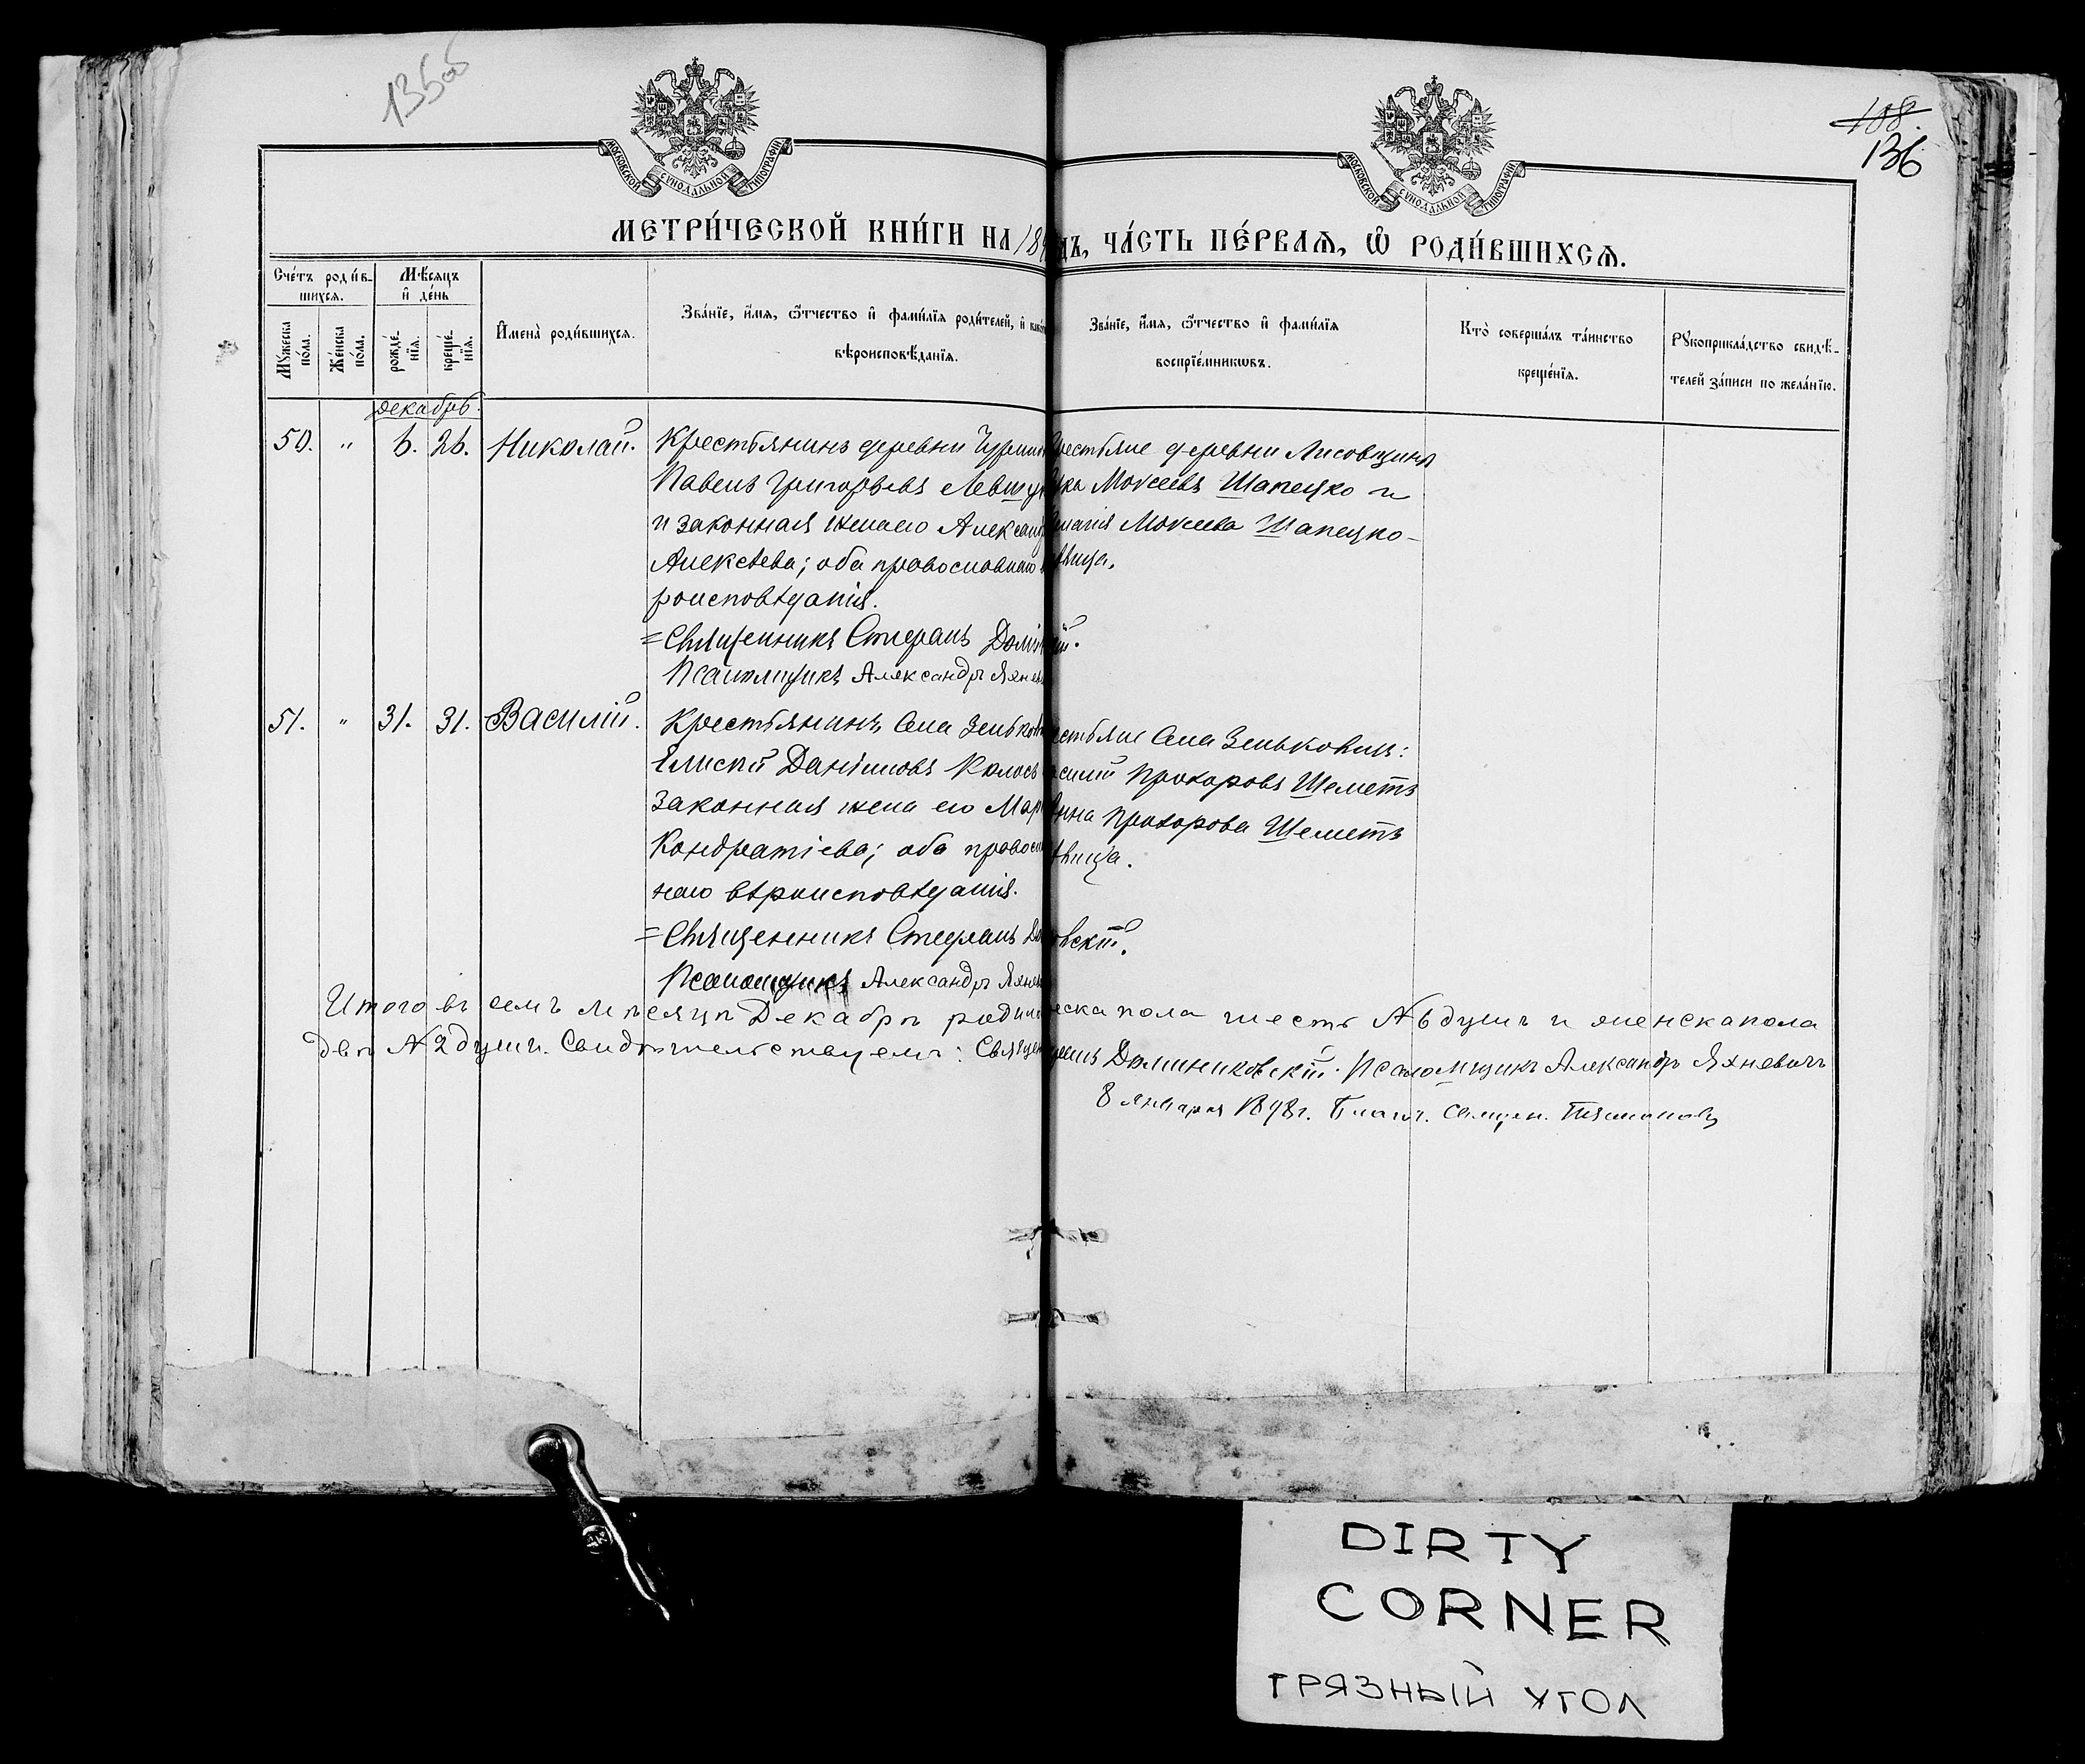 135об
108.
136
МОСКОВСКОЙ СѴНОДАЛЬНОЙ ТИПОГРАФІИ
МОСКОВСКОЙ СѴНОДАЛЬНОЙ ТИПОГРАФІИ
МЕТРИ́ЧЕСКОЙ КНИ́ГИ НА 18
дъ, ЧА́СТЬ ПЕ́РВАѦ, Ѽ РОДИ́ВШИХСѦ.
Сче́тъ роди́в-
шихсѧ.
Мѣ́сѧцъ
и҆ де́нь
Мꙋ́жеска по́ла.
Же́нска по́ла.
рожде́-нїѧ.
креще́-нїѧ.
И҆мена̀ роди́вшихсѧ.
Зва́нїе, и҆́мѧ, ѻ҆́тчество и҆ фами́лїѧ роди́телей, и҆ како
вѣроисповѣ́данїѧ.
Зва́нїе, и҆́мѧ, ѻ҆́тчество и҆ фами́лїѧ
воспрїе́мникѡвъ.
Кто̀ соверша́лъ та́инство
креще́нїѧ.
Рꙋкоприкла́дство свидѣ́-
телей за́писи по жела́нїю.
декабрь.
50. " 6. 26. Николай.
Крестьянинъ деревни
Павелъ Григорьевъ Левшу
и законная жена его Александ
Алексѣева; оба православнаго в
роисповѣданія.
=Священникъ Стефанъ Домин
Псаломщикъ Александръ Яхнев
рестьяне деревни Лисовщины
Моисеевъ Шапецко и
Моисеева Шапецко-
ѣвица.
кій.
51. " 31. 31. Василій.
Крестьянинъ Села Зеньков
Елисей Даніиловъ Колосъ
законная жена его Мар
Кондратіева; оба правосл
наго вѣроисповѣданія.
=Священникъ Стефанъ До
Псаломщикъ Александръ Яхнев
естьяне Села Зеньковичъ:
асилій Прохоровъ Шеметъ
Анна Прохорова Шеметъ
ѣвица.
овскій.
Итого въ семъ мѣсяцѣ Декабрѣ родило
еска пола шесть №6 душъ и женска пола
двѣ №2 душъ. Свидѣтельствуемъ: Священ
Доминиковскій. Псаломщикъ Александръ Яхневичъ
8 января 1898 г. Благоч. Священ.
DIRTY
CORNER
ГРЯЗНЫЙ УГОЛ